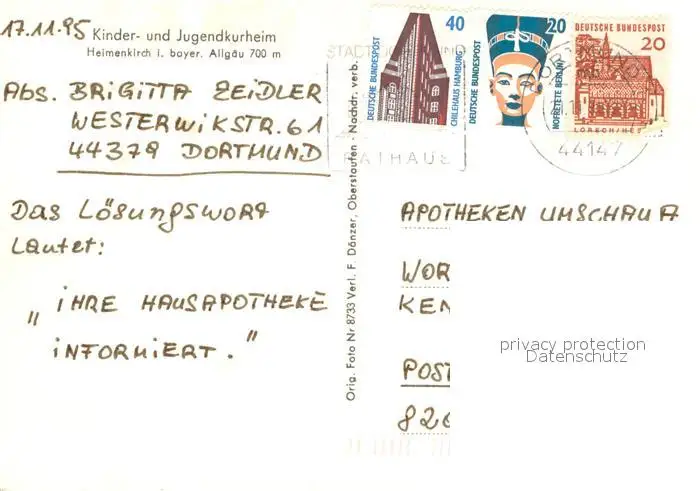 17.11.95
Kinder- und Jugendkurheim
Heimenkirch i. bayer. Allgäu 700 m
Abs. BRIGITTA ZEIDLER
WESTERWIKSTR. 61
44379 DORTMUND
Das Lösungswort
Lautet:
„IHRE HAUSAPOTHEKE
INFORMIERT."
Orig. Foto Nr. 8733 Verl. F. Dänzer, Oberstaufen · Nachdr. verb.
RATHAUS
40
DEUTSCHE BUNDESPOST
CHILEHAUS HAMBURG
20
DEUTSCHE BUNDESPOST
NOFRETETE BERLIN
DEUTSCHE BUNDESPOST
20
LORSCH/HES
44147
APOTHEKEN UMSCHAU A
WOR
KEN
POST
826
privacy protection
Datenschutz